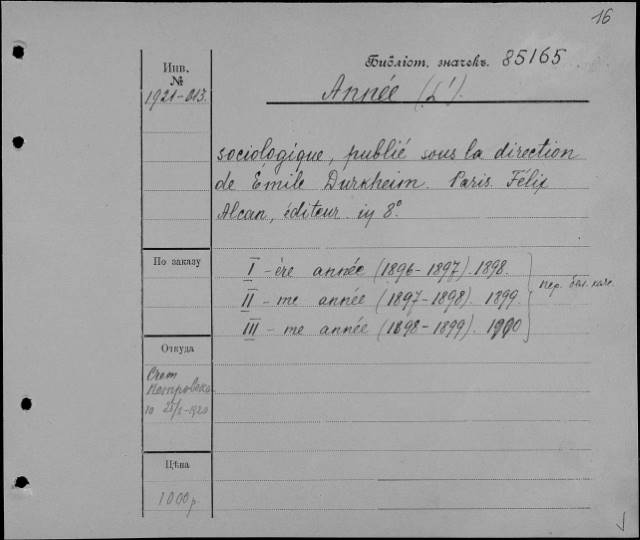 16
Инв.
№
1921-613.
Библіот. значекъ. 85165
Année (L').
sociologique, publié sous la direction
de Émile Durkheim. Paris. Félix
Alcan, éditeur. in 8°
По заказу
I - ère année (1896-1897). 1898.
II - me année (1897-1898). 1899.
III - me année (1898-1899). 1900
пер.
Откуда
Счет
Петровска
10
1920
Цѣна
1000 р